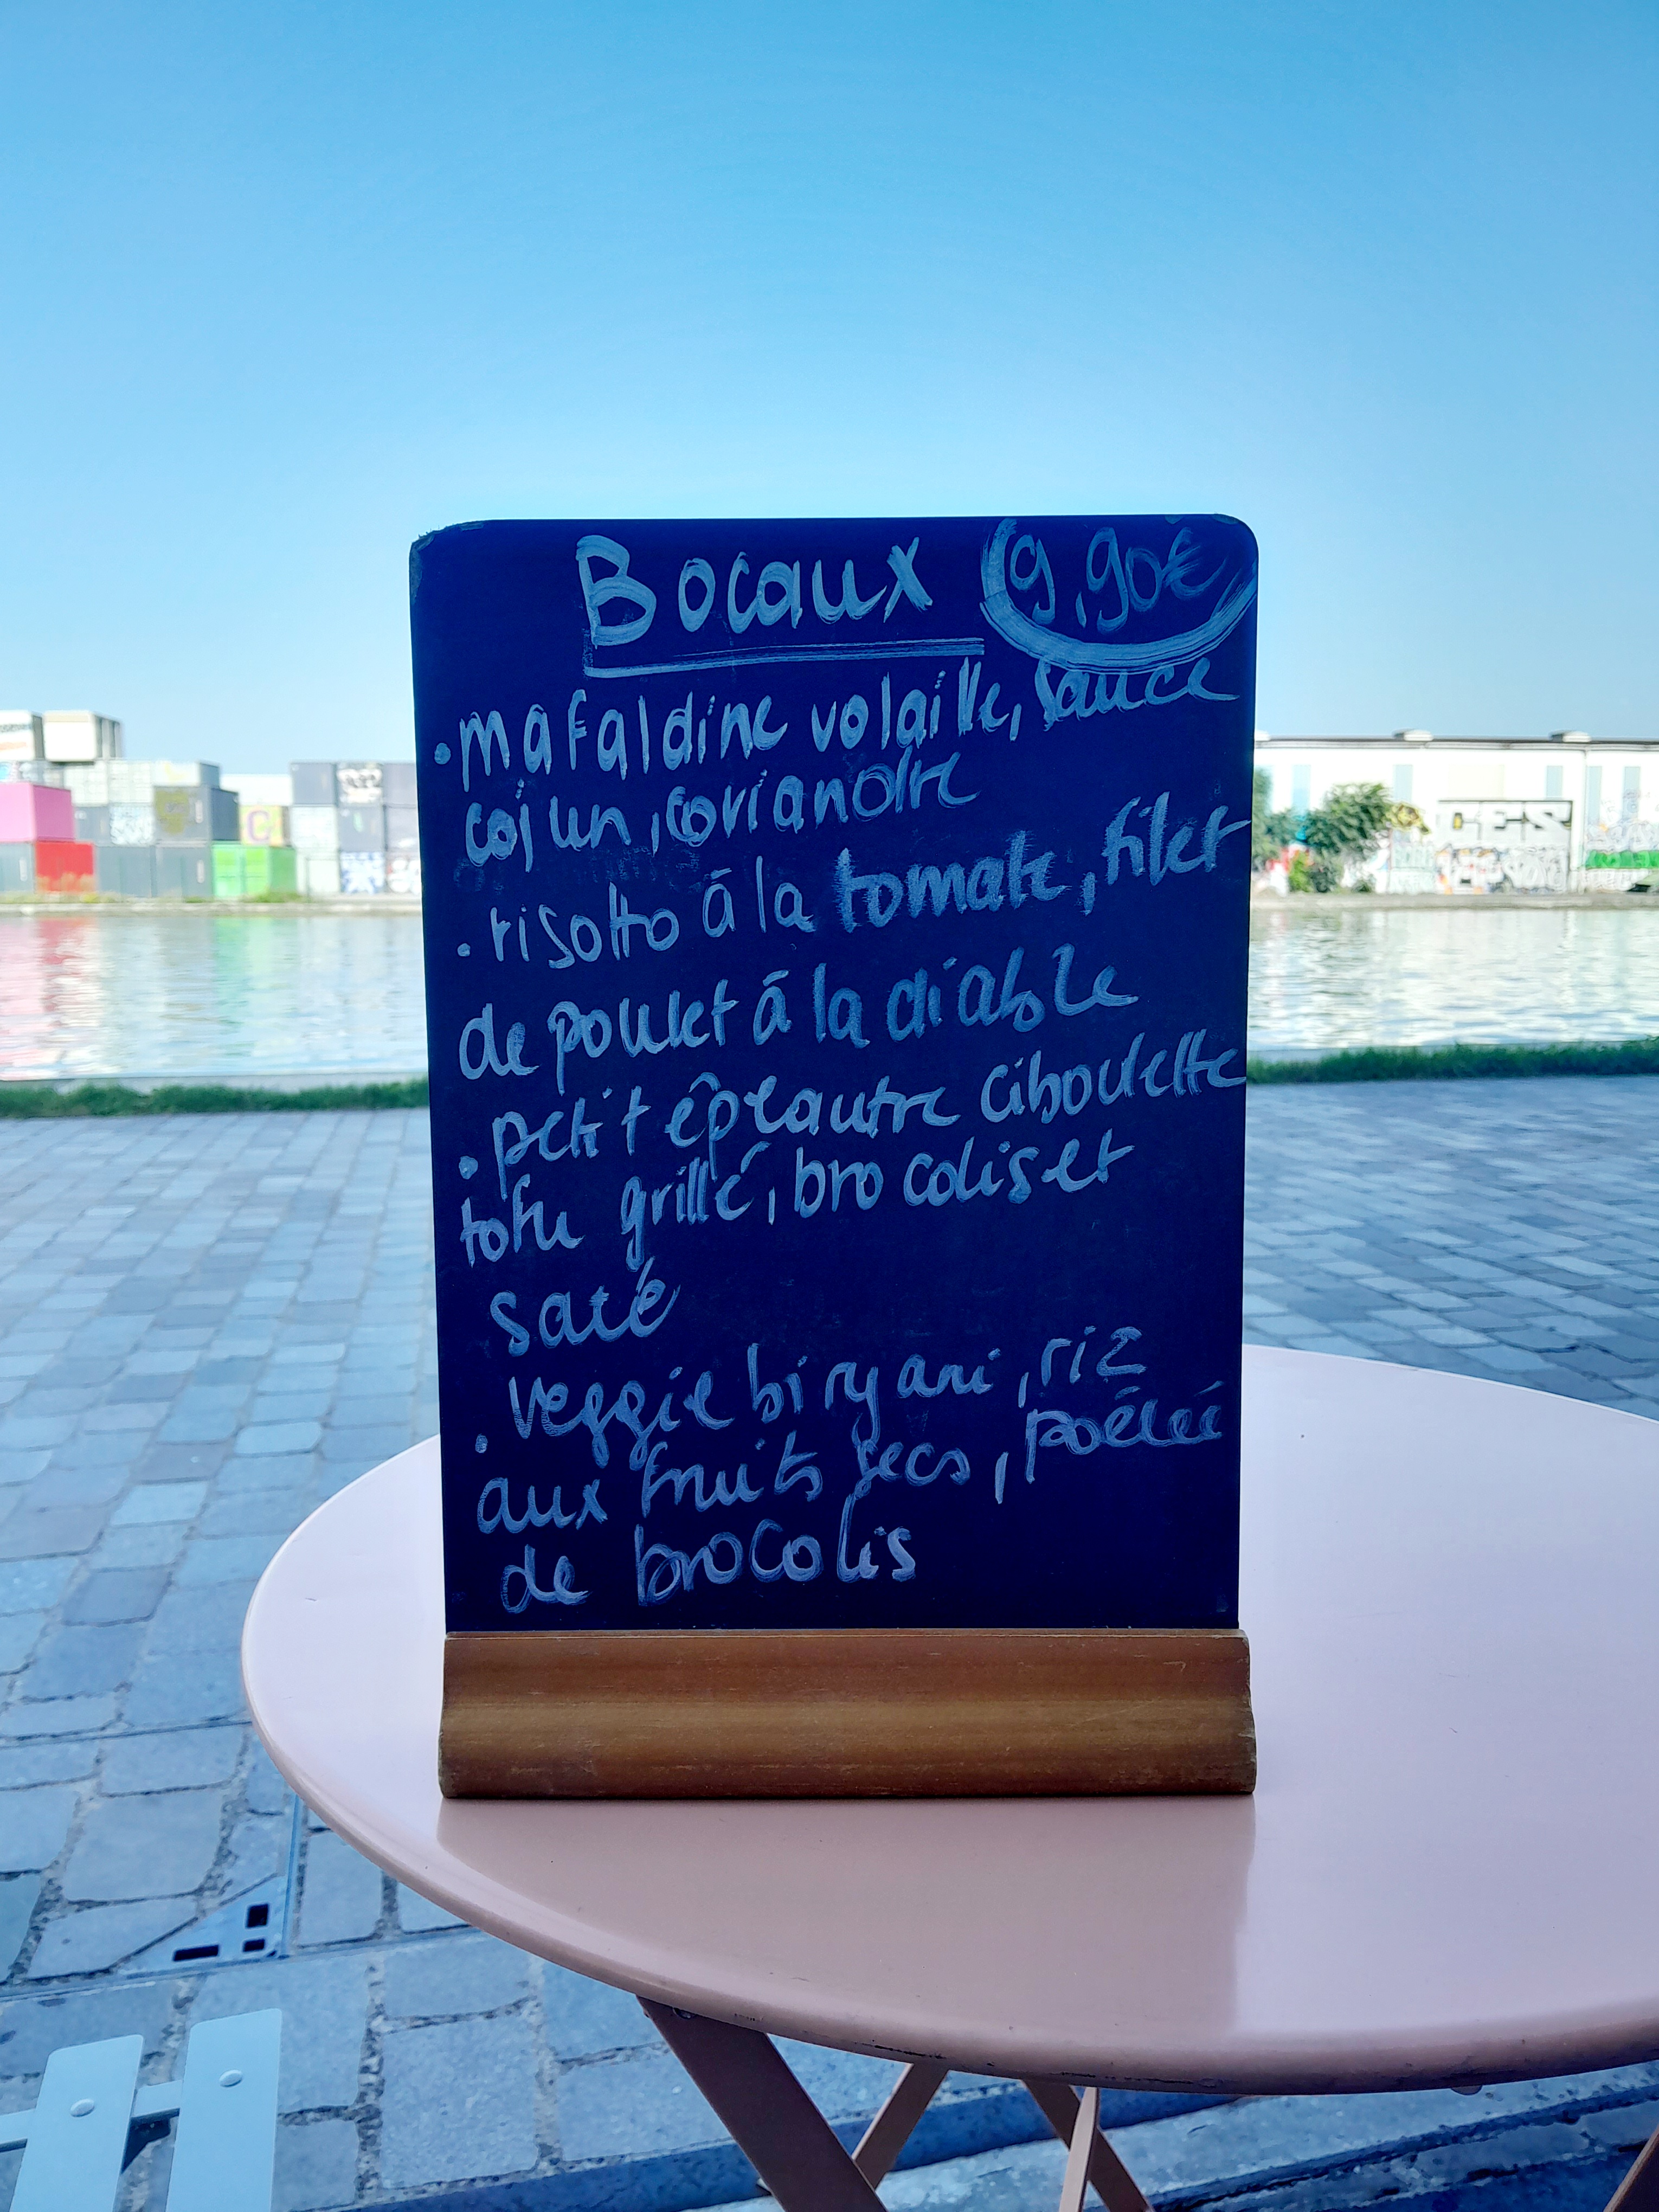 Bocaux 9,90€
• mafaldine volaille, sauce
cajun, coriandre
• risotto à la tomate, filet
de poulet à la diable
• petit épeautre ciboulette
tofu grillé, brocolis et
saté
• veggie biryani, riz
aux fruits secs, poêlée
de brocolis